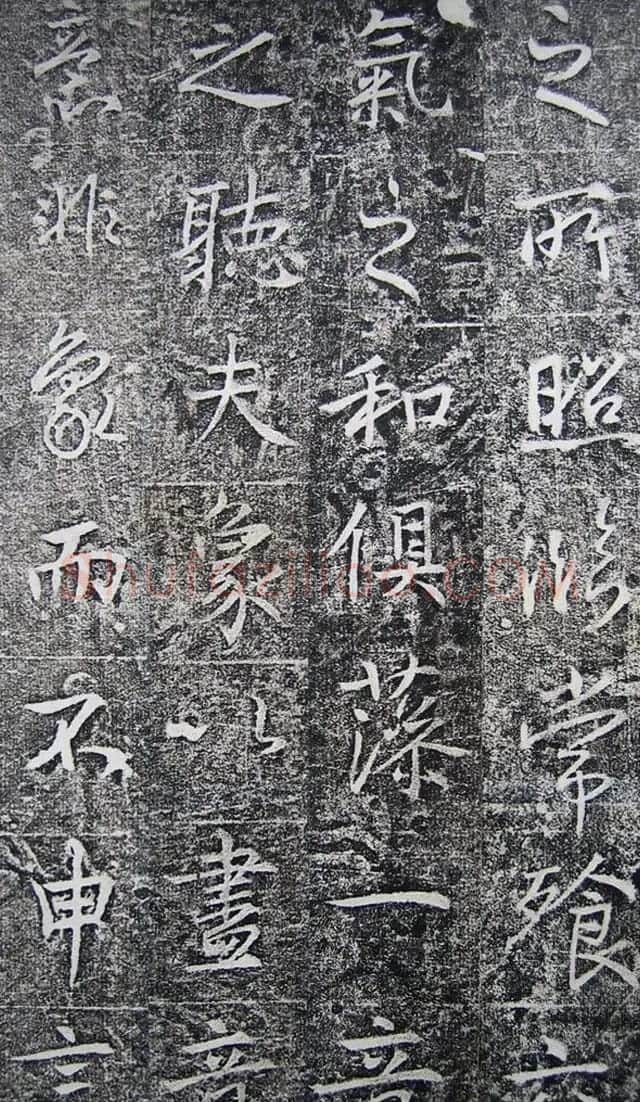 之所照臨常飱六
氣之和俱藻一音
之聽夫象以盡意
意非象而不申言
Shufaziliao.COM